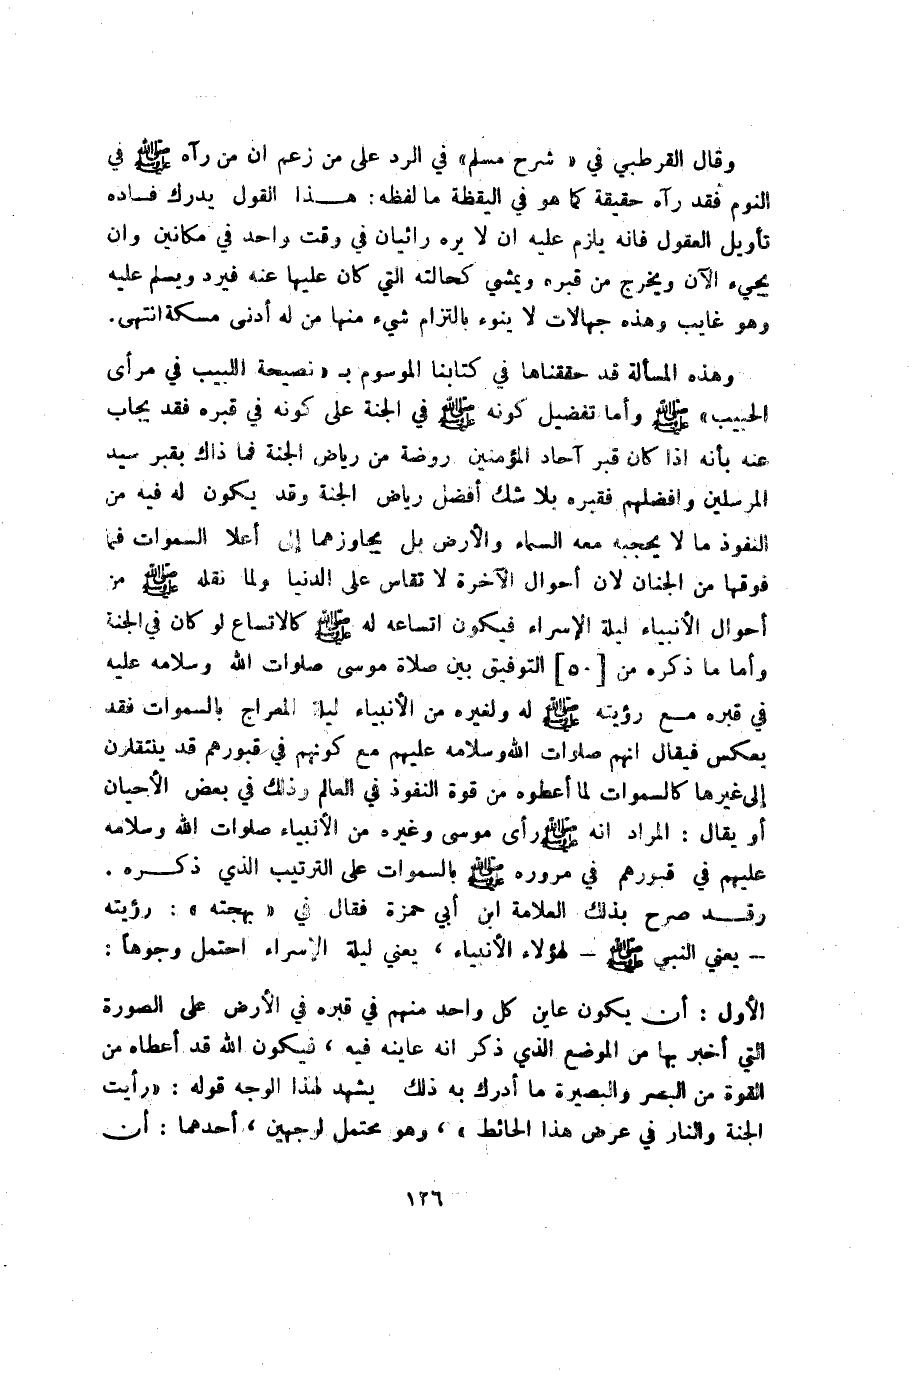 وقال القرطبي في « شرح مسلم» في الرد على من زعم ان من رآه ﷺ في
النوم فقد رآه حقيقة كما هو في اليقظة ما لفظه: هــذا القول يدرك فساده
تأويل العقول فانه يلزم عليه ان لا يره رائيان في وقت واحد في مكانين وان
يجيء الآن ويخرج من قبره ويمشي كحالته التي كان عليها عنه فيرد ويسلم عليه
وهو غايب وهذه جهالات لا ينوء بالتزام شيء منها من له أدنى مسكة انتهى.
وهذه المسألة قد حققناها في كتابنا الموسوم بـ « نصيحة اللبيب في مرأى
الحبيب» ﷺ وأما تفضيل كونه ﷺ في الجنة على كونه في قبره فقد يجاب
عنه بأنه اذا كان قبر آحاد المؤمنين روضة من رياض الجنة فما ذاك بقبر سيد
المرسلين وافضلهم فقبره بلا شك أفضل رياض الجنة وقد يكون له فيه من
النفوذ ما لا يحجبه معه السماء والأرض بل يجاوزهما إلى أعلا السموات فما
فوقها من الجنان لان أحوال الآخرة لا تقاس على الدنيا ولما نقله ﷺ من
أحوال الأنبياء ليلة الإسراء فيكون اتساعه له ﷺ كالاتساع لو كان في الجنة
وأما ما ذكره من [٥٠] التوفيق بين صلاة موسى صلوات الله وسلامه عليه
في قبره مــع رؤيته ﷺ له ولغيره من الأنبياء ليلة المعراج بالسموات فقد
يعكس فيقال انهم صلوات الله وسلامه عليهم مع كونهم في قبورهم قد ينتقلون
إلى غيرها كالسموات لما أعطوه من قوة النفوذ في العالم وذلك في بعض الأحيان
أو يقال : المراد انه ﷺ رأى موسى وغيره من الأنبياء صلوات الله وسلامه
عليهم في قبورهم في مروره ﷺ بالسموات على الترتيب الذي ذكــره .
وقــد صرح بذلك العلامة ابن أبي حمزة فقال في « بهجته » : رؤيته
– يعني النبي ﷺ – لهؤلاء الأنبياء ، يعني ليلة الإسراء احتمل وجوهاً :
الأول : أن يكون عاين كل واحد منهم في قبره في الأرض على الصورة
التي أخبر بها من الموضع الذي ذكر انه عاينه فيه ، فيكون الله قد أعطاه من
القوة من البصر والبصيرة ما أدرك به ذلك يشهد لهذا الوجه قوله : «رأيت
الجنة والنار في عرض هذا الحائط » ، وهو محتمل لوجهين ، أحدهما : أن
١٢٦